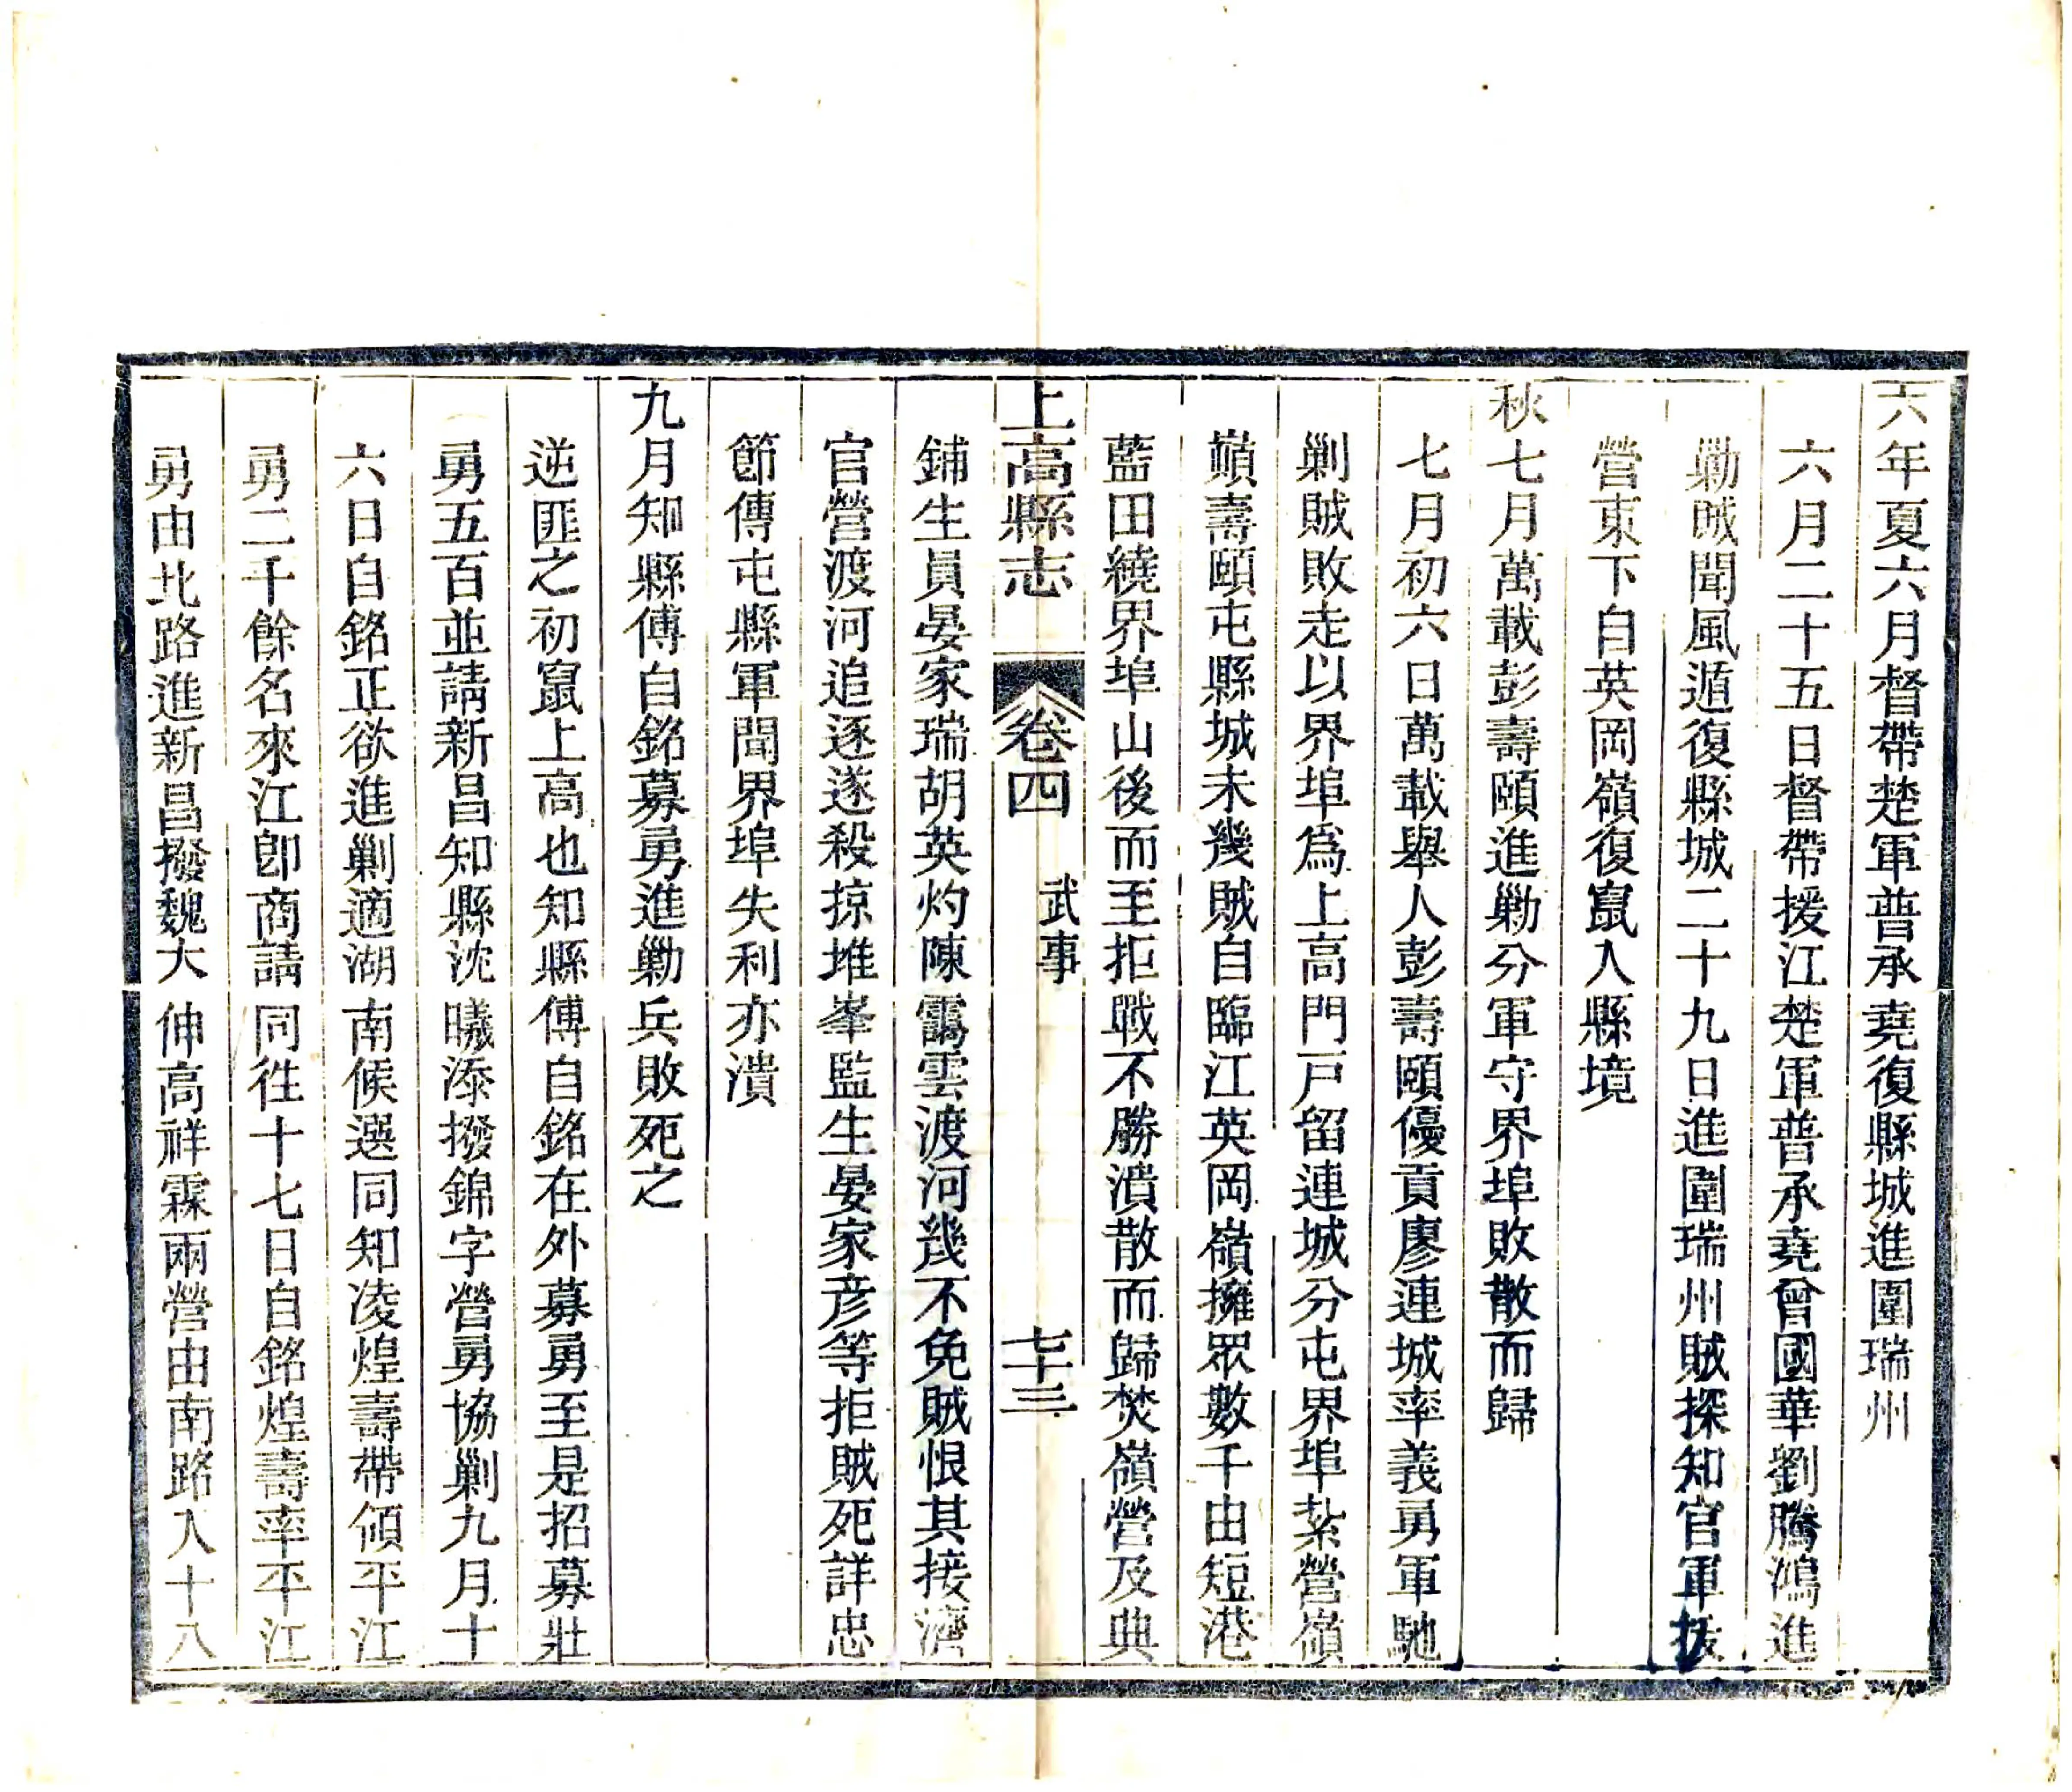 六年夏六月督帶楚軍普承堯復縣城進圍瑞州
六月二十五日督帶援江楚軍普承堯曾國華劉騰鴻進
勦賊聞風遁復縣城二十九日進圍瑞州賊探知官軍拔
營東下自英岡嶺復竄入縣境
秋七月萬載彭壽頤進勦分軍守界埠敗散而歸
七月初六日萬載舉人彭壽頤優貢廖連城率義勇軍馳
剿賊敗走以界埠爲上高門戸留連城分屯界埠紮營嶺
巔壽頤屯縣城未幾賊自臨江英岡嶺擁眾數千由短港
藍田繞界埠山後而至拒戰不勝潰散而歸焚嶺營及典
上高縣志
卷四
武事
七十三
鋪生員晏家瑞胡英灼陳靄雲渡河幾不免賊恨其接濟
官營渡河追逐遂殺掠堆峯監生晏家彦等拒賊死詳忠
節傳屯縣軍聞界埠失利亦潰
九月知縣傅自銘募勇進勦兵敗死之
逆匪之初竄上高也知縣傅自銘在外募勇至是招募壯
勇五百並請新昌知縣沈曦添撥錦字營勇協剿九月十
六日自銘正欲進剿適湖南候選同知凌煌壽帶領平江
勇二千餘名來江卽商請同徃十七日自銘煌壽率平江
勇由北路進新昌撥魏大伸高祥霖兩營由南路入十八